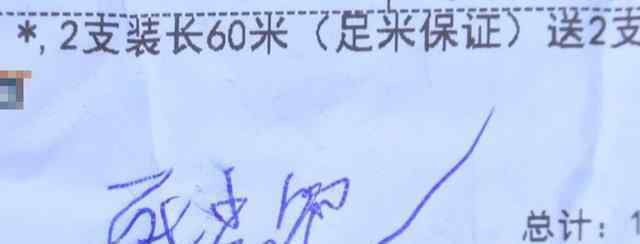 *,2支装长60米（足米保证）送2支
总计：1